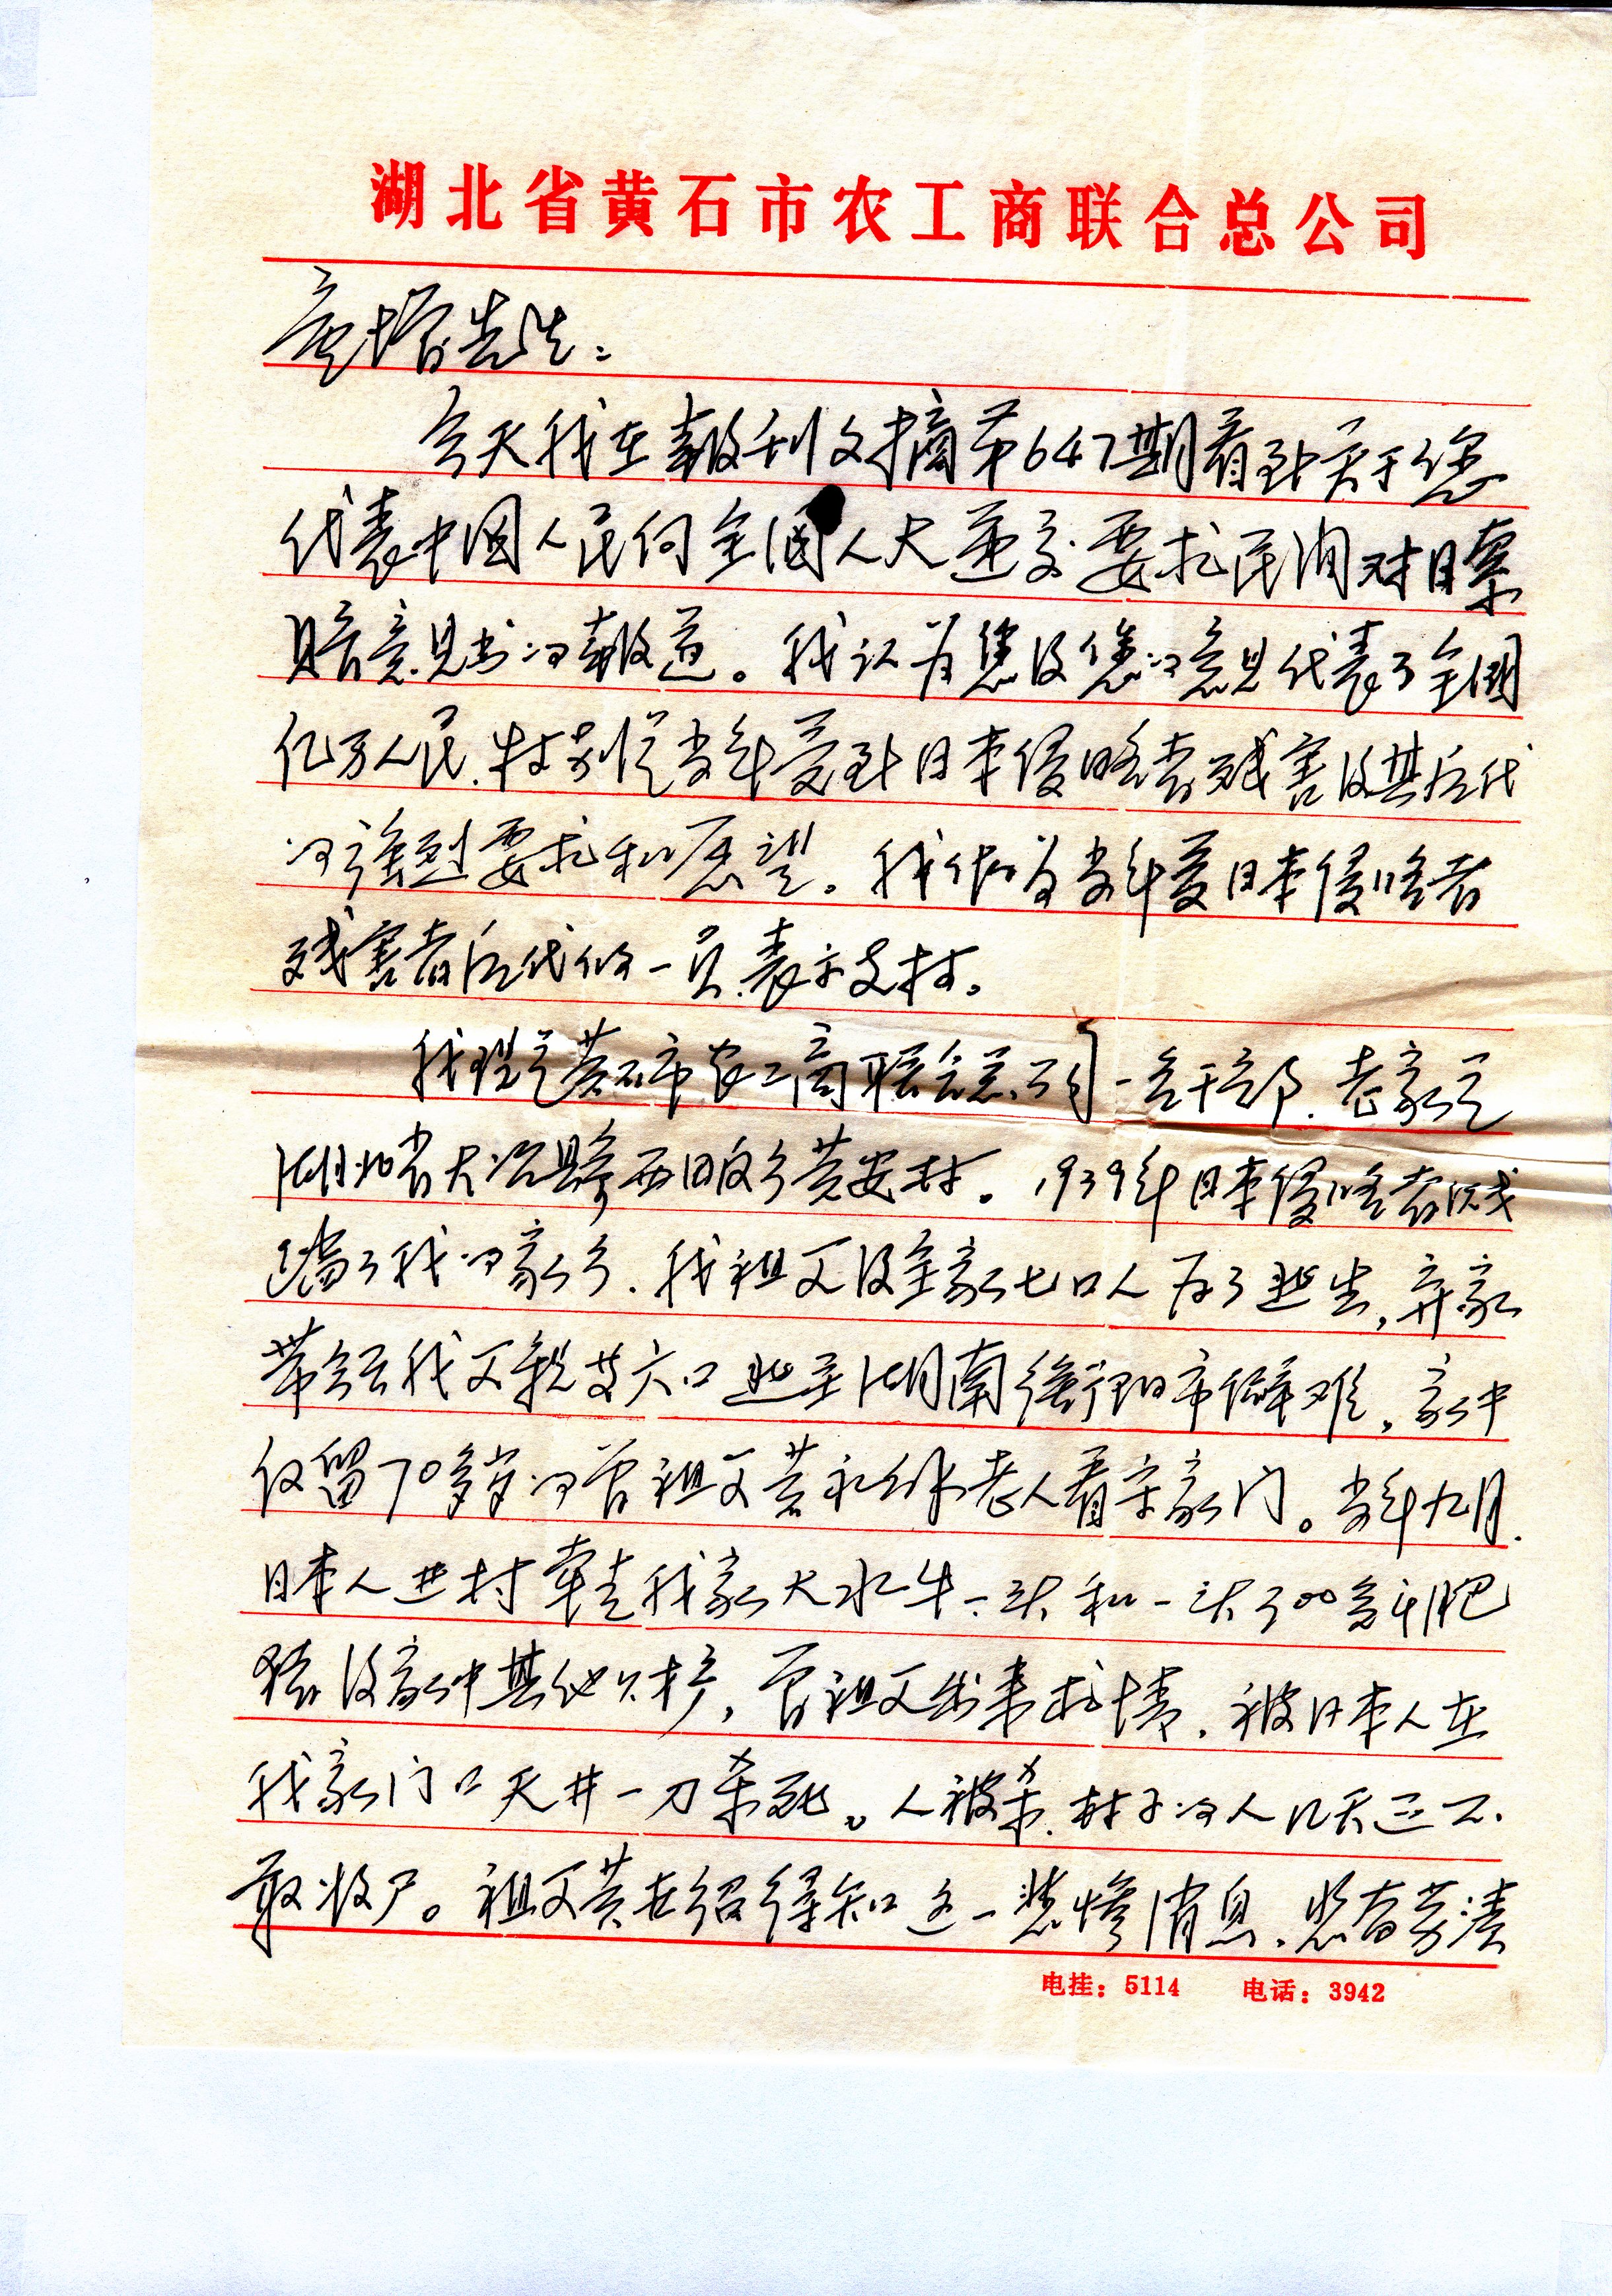 湖北省黄石市农工商联合总公司
童增先生：
今天我在报刊文摘第647期看到关于您
代表中国人民向全国人大递交要求民间对日索
赔意见书的报道。我认为您及您的意见代表了全国
亿万人民，特别是当年受到日本侵略者残害及其后代
的强烈要求和愿望。我做为当年受日本侵略者
残害者后代的一员，表示支持。
我现是黄石市农工商联合总公司一名干部，老家是
湖北省大冶县西畈乡黄安村。1939年日本侵略者践
踏了我的家乡，我祖父及全家七口人为了逃生，弃家
带领我父亲等六口逃至湖南衡阳市避难，家中
仅留70多岁的曾祖父黄永 老人看守家门。当年九月，
日本人进村牵走我家大水牛一头和一头300多斤肥
猪及家中其他财产，曾祖父出来求情，被日本人在
我家门口天井一刀杀死。人被杀，村子的人几天还不
敢收尸。祖父黄世绍得知这一悲惨消息，悲奋
电挂：5114 电话：3942